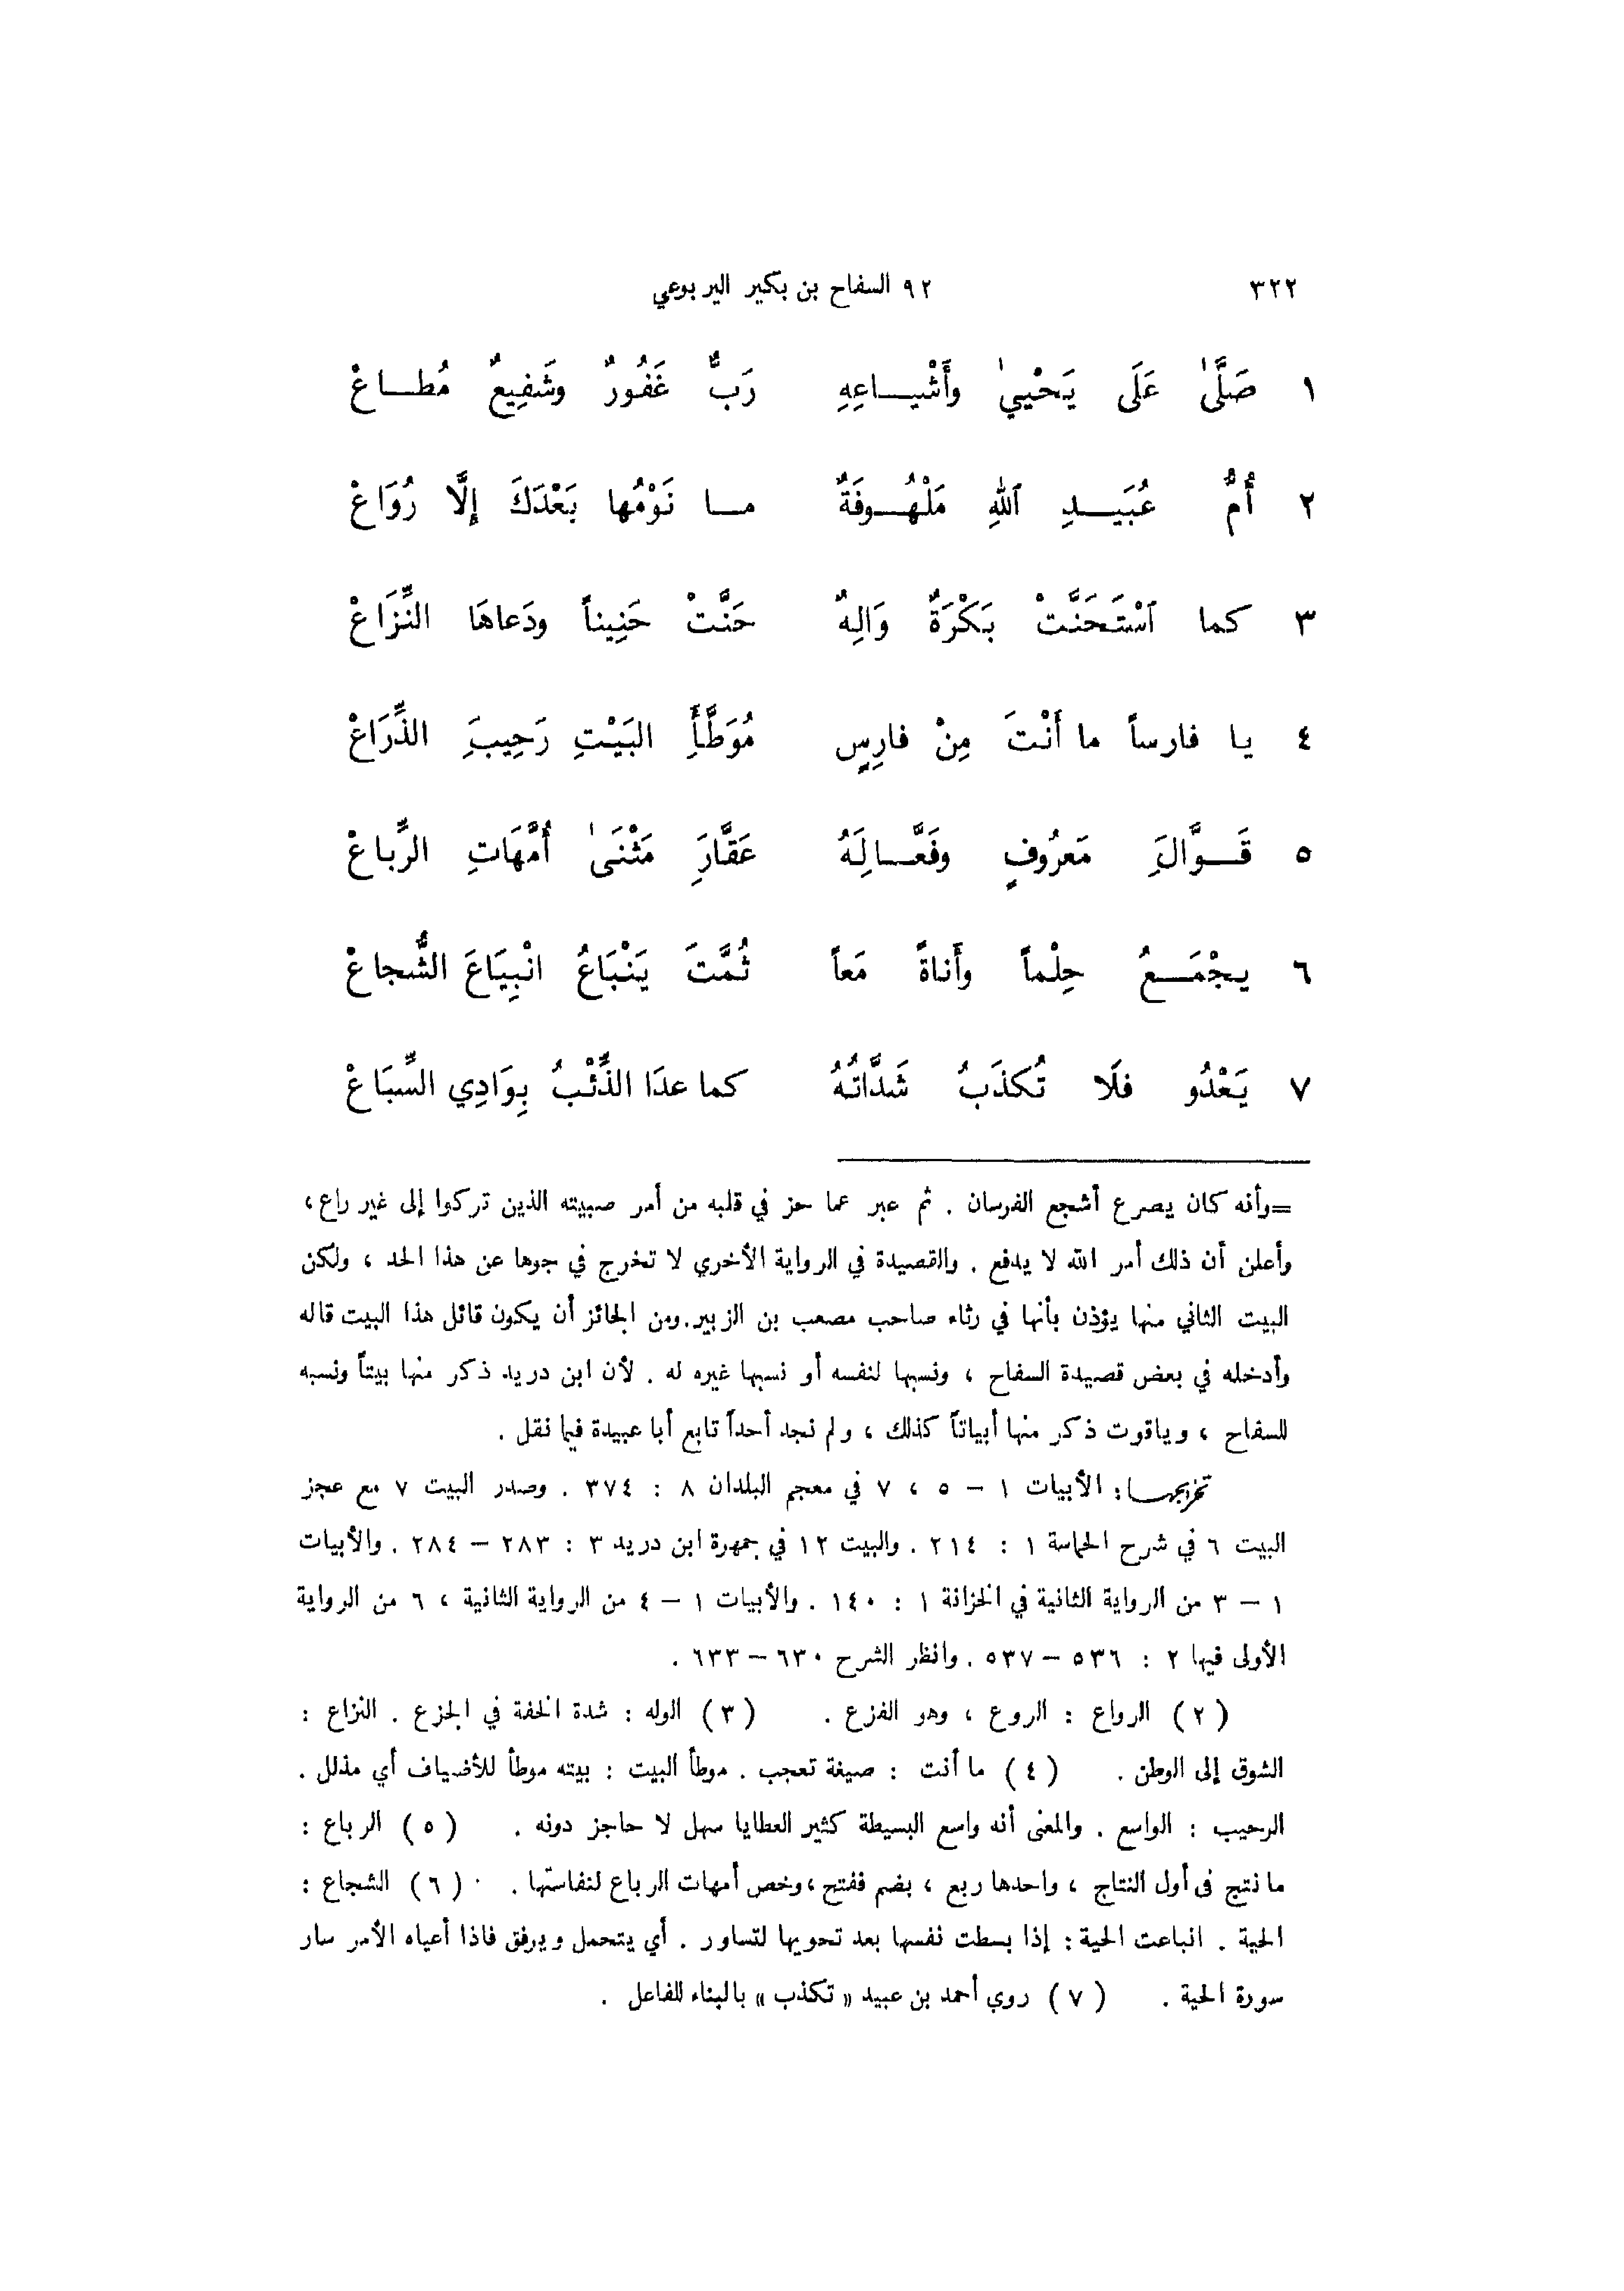 ٣٢٢ ٩٢ السفاح بن بكير اليربوعي
١ صَلَّىٰ عَلَى يَحْيىٰ وأَشْيـاعِهِ رَبٌّ غَفُورٌ وشَفِيعٌ مُطـاعْ
٢ أُمُّ عُبَيـدِ ٱللهِ مَلْهُـوفَةٌ مـا نَوْمُها بَعْدَكَ إِلَّا رُوَاعْ
٣ كما ٱسْتَحَنَّتْ بَكْرَةٌ وَالِهٌ حَنَّتْ حَنِيناً ودَعاهَا النِّزَاعْ
٤ يا فارساً ما أَنْتَ مِنْ فارِسٍ مُوَطَّأَِ البَيْتِ رَحِيبَِ الذِّرَاعْ
٥ قَـوَّالَِ مَعرُوفٍ وفَعَّـالِهَُ عَقَّارَِ مَثْنَىٰ أُمَّهَاتِ الرِّباعْ
٦ يجْمَـعُ حِلْماً وأَناةً مَعاً ثُمَّتَ يَنْبَاعُ انْبِيَاعَ الشُّجاعْ
٧ يَعْدُو فلَا تُكذَبُ شَدَّاتُهُ كما عدَا الذِّئْبُ بِوَادِي السِّبَاعْ
=وأنه كان يصرع أشجع الفرسان . ثم عبر عما حز في قلبه من أمر صبيته الذين تركوا إلى غير راع ،
وأعلن أن ذلك أمر الله لا يدفع . والقصيدة في الرواية الأخرى لا تخرج في جوها عن هذا الحد ، ولكن
البيت الثاني منها يؤذن بأنها في رثاء صاحب مصعب بن الزبير.ومن الجائز أن يكون قائل هذا البيت قاله
وأدخله في بعض قصيدة السفاح ، ونسبها لنفسه أو نسبها غيره له . لأن ابن دريد ذكر منها بيتاً ونسبه
للسفاح ، وياقوت ذكر منها أبياتاً كذلك ، ولم نجد أحداً تابع أبا عبيدة فيما نقل .
تخريجهـا: الأبيات ١ – ٥ ، ٧ في معجم البلدان ٨ : ٣٧٤ . وصدر البيت ٧ مع عجز
البيت ٦ في شرح الحماسة ١ : ٢١٤ . والبيت ١٢ في جمهرة ابن دريد ٣ : ٢٨٣ – ٢٨٤ . والأبيات
١ – ٣ من الرواية الثانية في الخزانة ١ : ١٤٠ . والأبيات ١ – ٤ من الرواية الثانية ، ٦ من الرواية
الأولى فيها ٢ : ٥٣٦ – ٥٣٧ . وانظر الشرح ٦٣٠ – ٦٣٣ .
( ٢ ) الرواع : الروع ، وهو الفزع . ( ٣ ) الوله : شدة الخفة في الجزع . النزاع :
الشوق إلى الوطن . ( ٤ ) ما أنت : صيغة تعجب . موطأ البيت : بيته موطأ للأضياف أي مذلل .
الرحيب : الواسع . والمعنى أنه واسع البسيطة كثير العطايا سهل لا حاجز دونه . ( ٥ ) الرباع :
ما نتج فى أول النتاج ، واحدها ربع ، بضم ففتح ،وخص أمهات الرباع لنفاستها . ( ٦ ) الشجاع :
الحية . انباعت الحية : إذا بسطت نفسها بعد تحويها لتساور . أي يتحمل ويرفق فاذا أعياه الأمر سار
سورة الحية . ( ٧ ) روي أحمد بن عبيد « تكذب » بالبناء للفاعل .